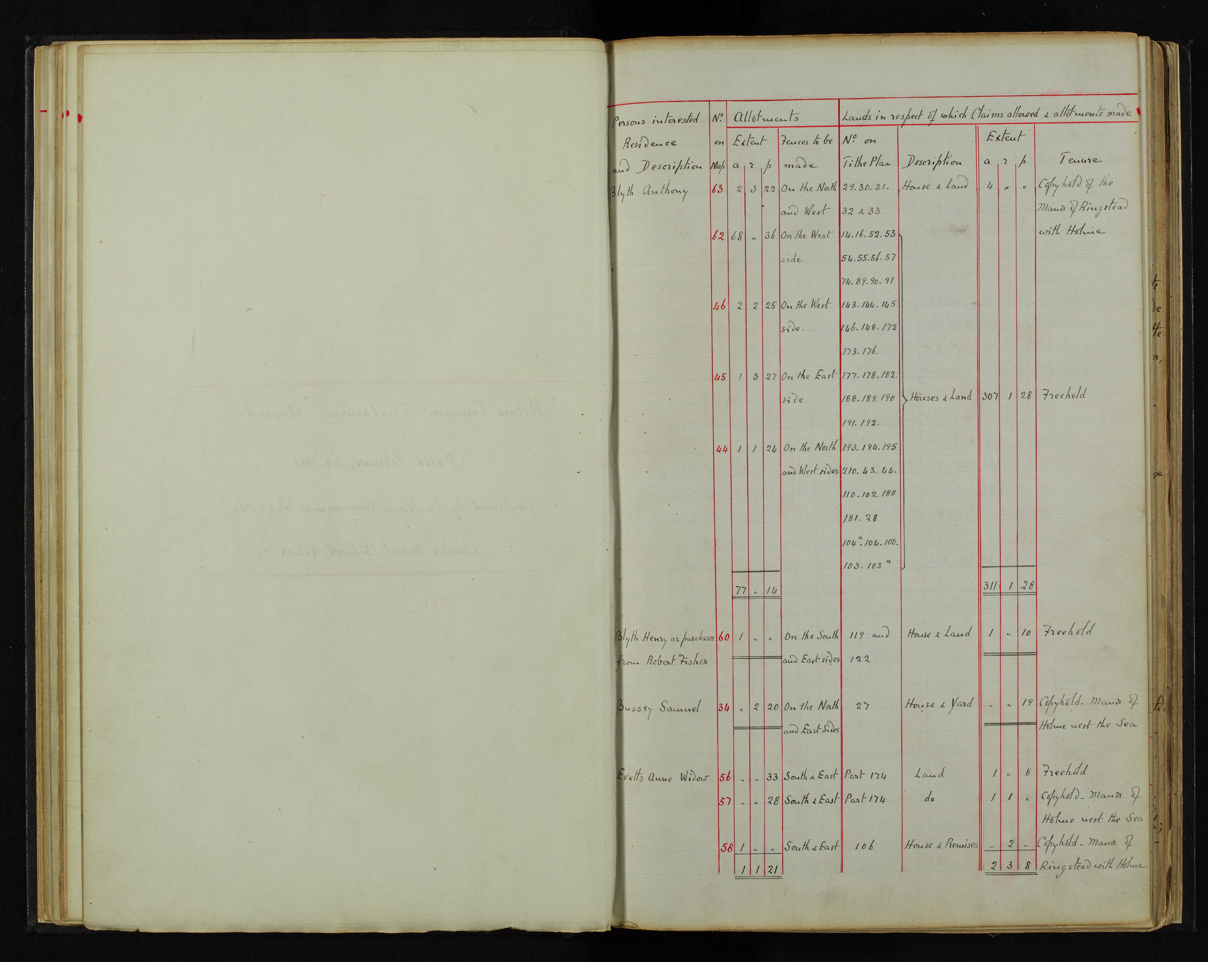 Persons interested Nº Allotments Lands in respect of which Claims allowed & allotments made
Residence on Extent Fences to be Nº on Extent
and Description Map a r p made Tithe Plan Description a r p Tenure
Blyth Anthony 63 2 3 22 On the North 29. 30. 31. House & Land 4 " " Copyhold of the
and West 32 & 33 Manor of Ringstead
62 68 " 36 On the West 14. 16. 52. 53 with Holme
side 54. 55. 56. 57
74. 89. 90. 91
46 2 2 25 On the West 143. 144. 145
side. 146. 148. 172
173. 176.
45 1 3 27 On the East 177. 178. 182.
side 188. 189. 190 Houses & Land 307 1 28 Freehold
191. 192.
44 1 1 24 On the North 193. 194. 195
and West sides 210. 43. 44.
110. 102. 180
181. 28
104ª. 104. 100.
103. 103ª
77 " 14 311 1 28
Blyth Henry as purchaser 60 1 " " On the South 119 and House & Land 1 " 10 Freehold
from Robert Fisher and East sides 122
Bussey Samuel 34 " 2 20 On the North 27 House & Yard " " 19 Copyhold - Manor of
and East Sides Holme next the Sea
Evetts Anne Widow 56 " " 33 South & East Part 174 Land 1 " 8 Freehold
57 " " 28 South & East Part 174 do 1 1 " Copyhold - Manor of
Holme next the Sea
58 1 " " South & East 106 House & Premises " 2 " Copyhold - Manor of
1 1 21 2 3 8 Ringstead with Holme